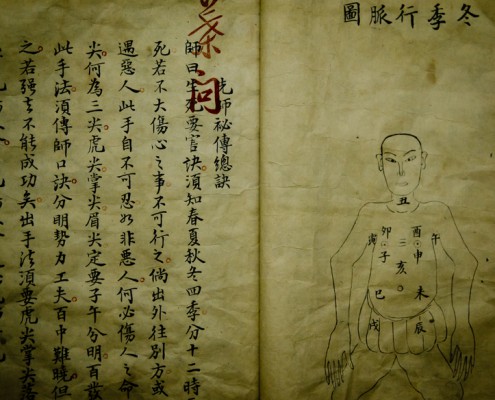 冬季行脈圖
丑
卯 酉
寅 三 午
子 申
亥
巳 未
戌 辰
葉問
先師祕傳總訣
師曰生死要害訣須知春夏秋冬四季分十二時
死若不大傷心之事不可行之倘出外往別方或
遇惡人此手自不可忍如非惡人何必傷人之命
尖何為三尖虎尖掌尖眉尖定要子午分明百發
此手法須傳師口訣分明勢力工夫百中難曉但
之若强言不能成功矣出手法須要虎尖掌尖落